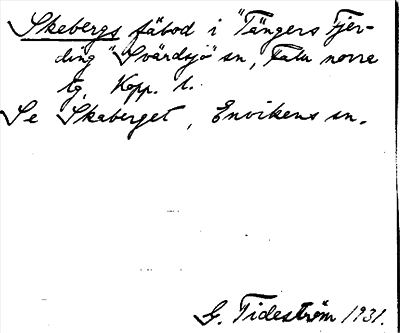 Skebergs fäbod i "Tängers Fjer-
ding" Svärdsjö sn, Falu norra
tg, Kopp. l.
Se Skaberget, Envikens sn.
G. Tideström 1931.